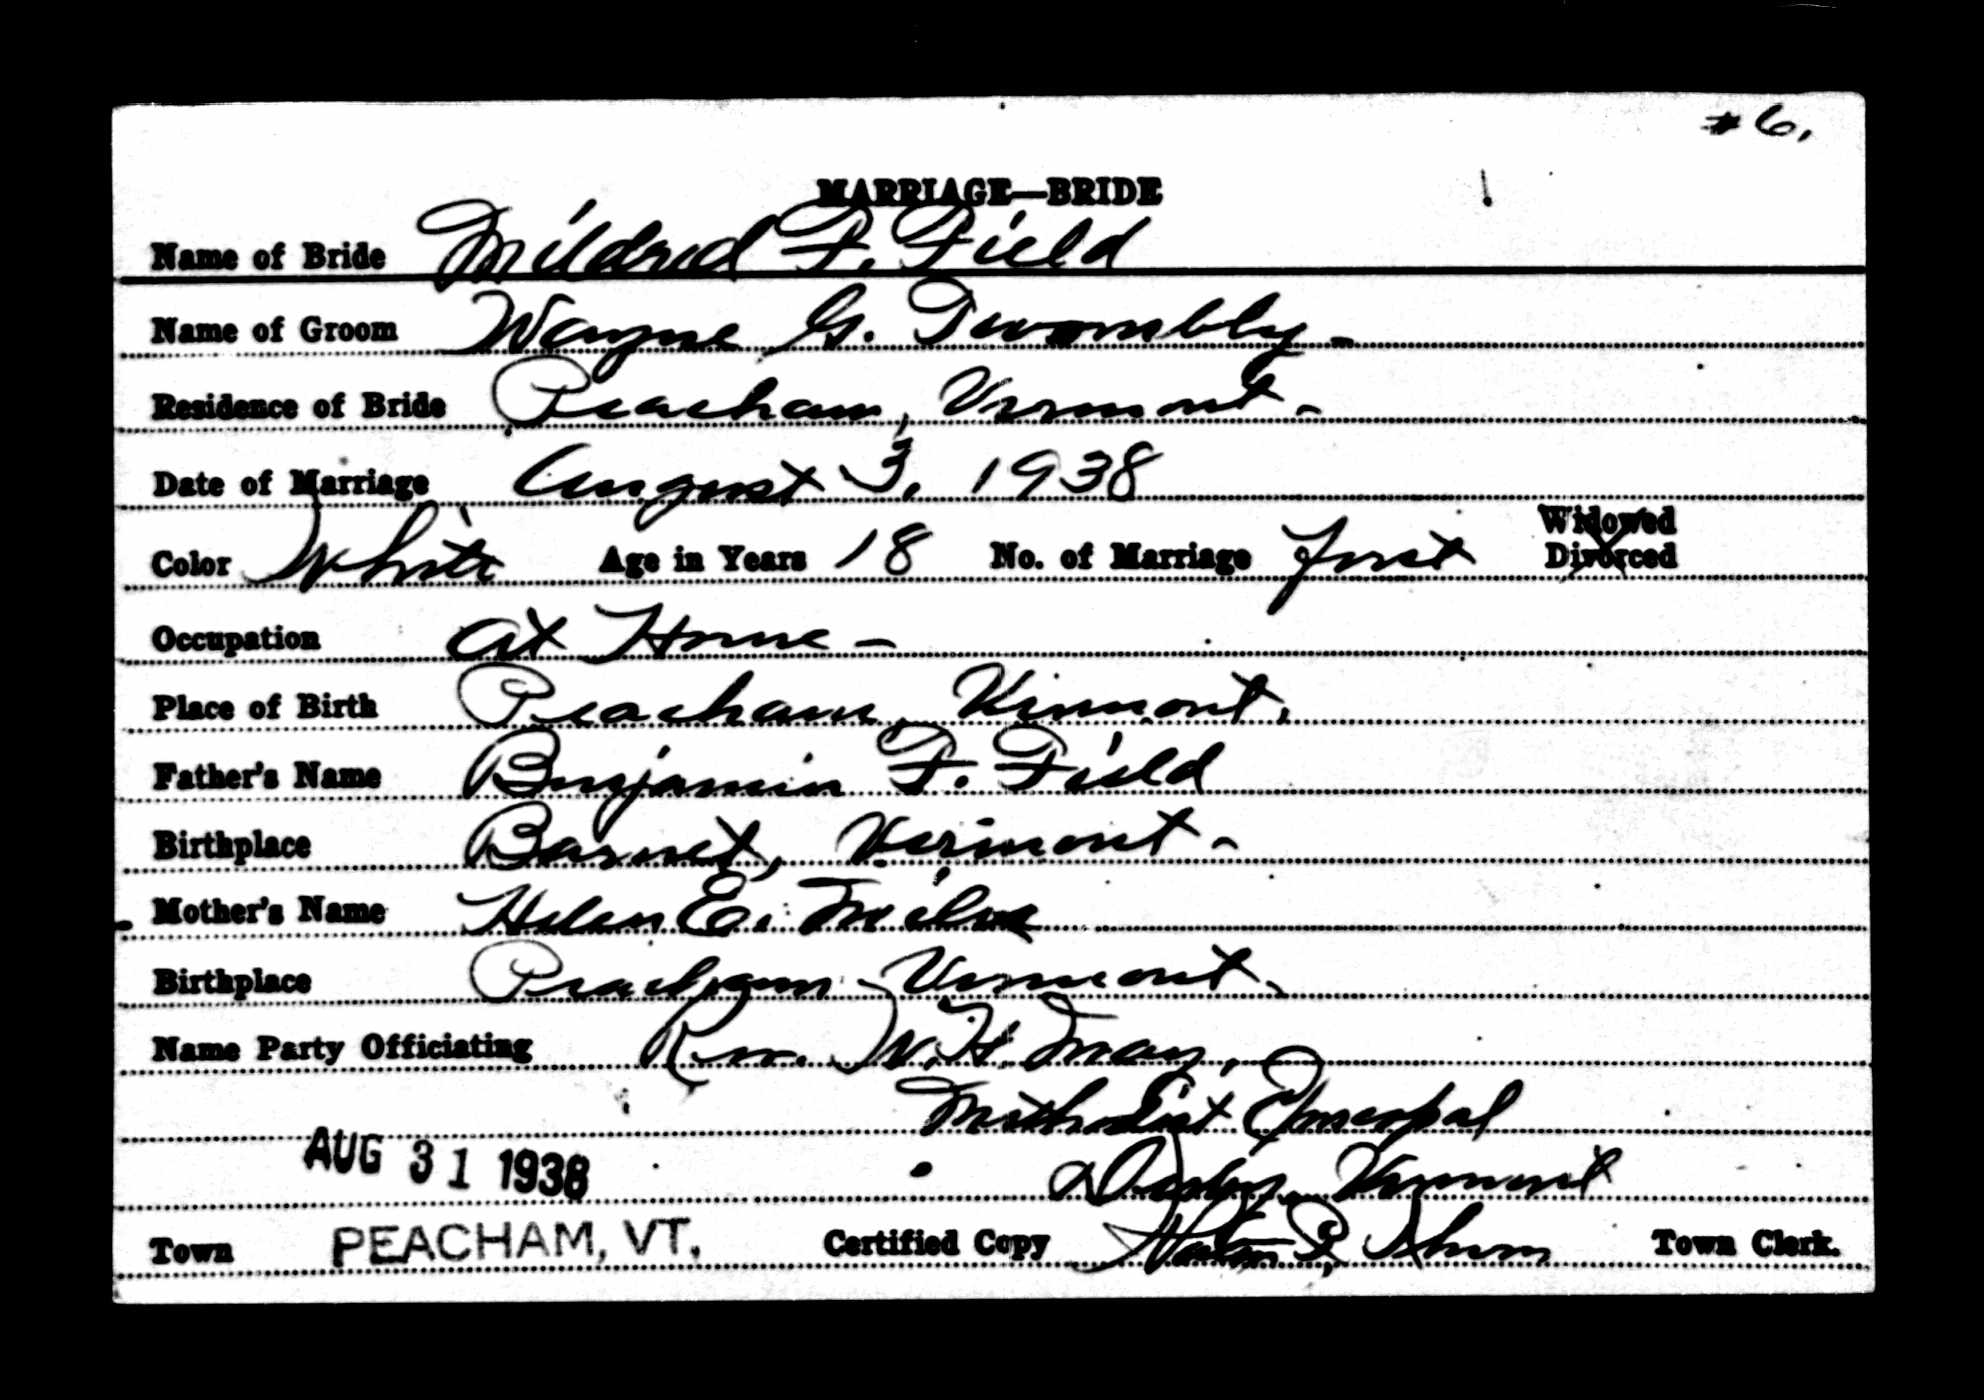 # 6.
MARRIAGE—BRIDE
Name of Bride Mildred F. Field
Name of Groom Wayne G. Twombly -
Residence of Bride Peacham, Vermont -
Date of Marriage August 3, 1938
Widowed
Color White Age in Years 18 No. of Marriage First Divorced
Occupation At Home -
Place of Birth Peacham, Vermont.
Father's Name Benjamin F. Field
Birthplace Barnet, Vermont -
Mother's Name Helen E.
Birthplace Peacham Vermont.
Name Party Officiating Rev. W. H. May,
Methodist Episcopal
AUG 31 1938 Derby, Vermont
Town PEACHAM, VT. Certified Copy Town Clerk.